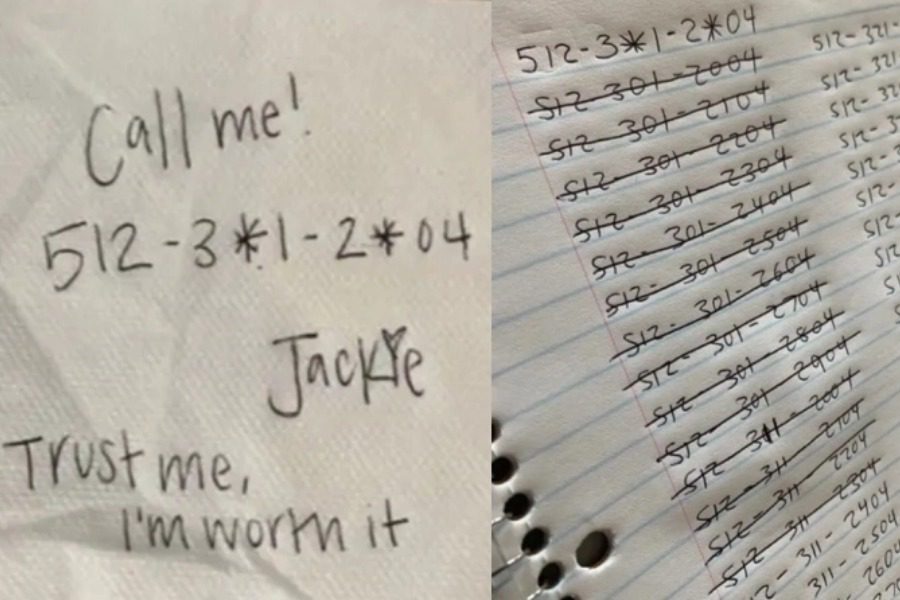 Call me!
512-3*1-2*04
Jackie
Trust me,
I'm worth it
512-3*1-2*04
512-301-2004
512-301-2104
512-301-2204
512-301-2304
512-301-2404
512-301-2504
512-301-2604
512-301-2704
512-301-2804
512-301-2904
512-311-2004
512-311-2104
512-311-2204
512-311-2304
12-311-2404
311-2504
2604
512-321-
512-321
512-32
512-3
512-3
512-
512-
512